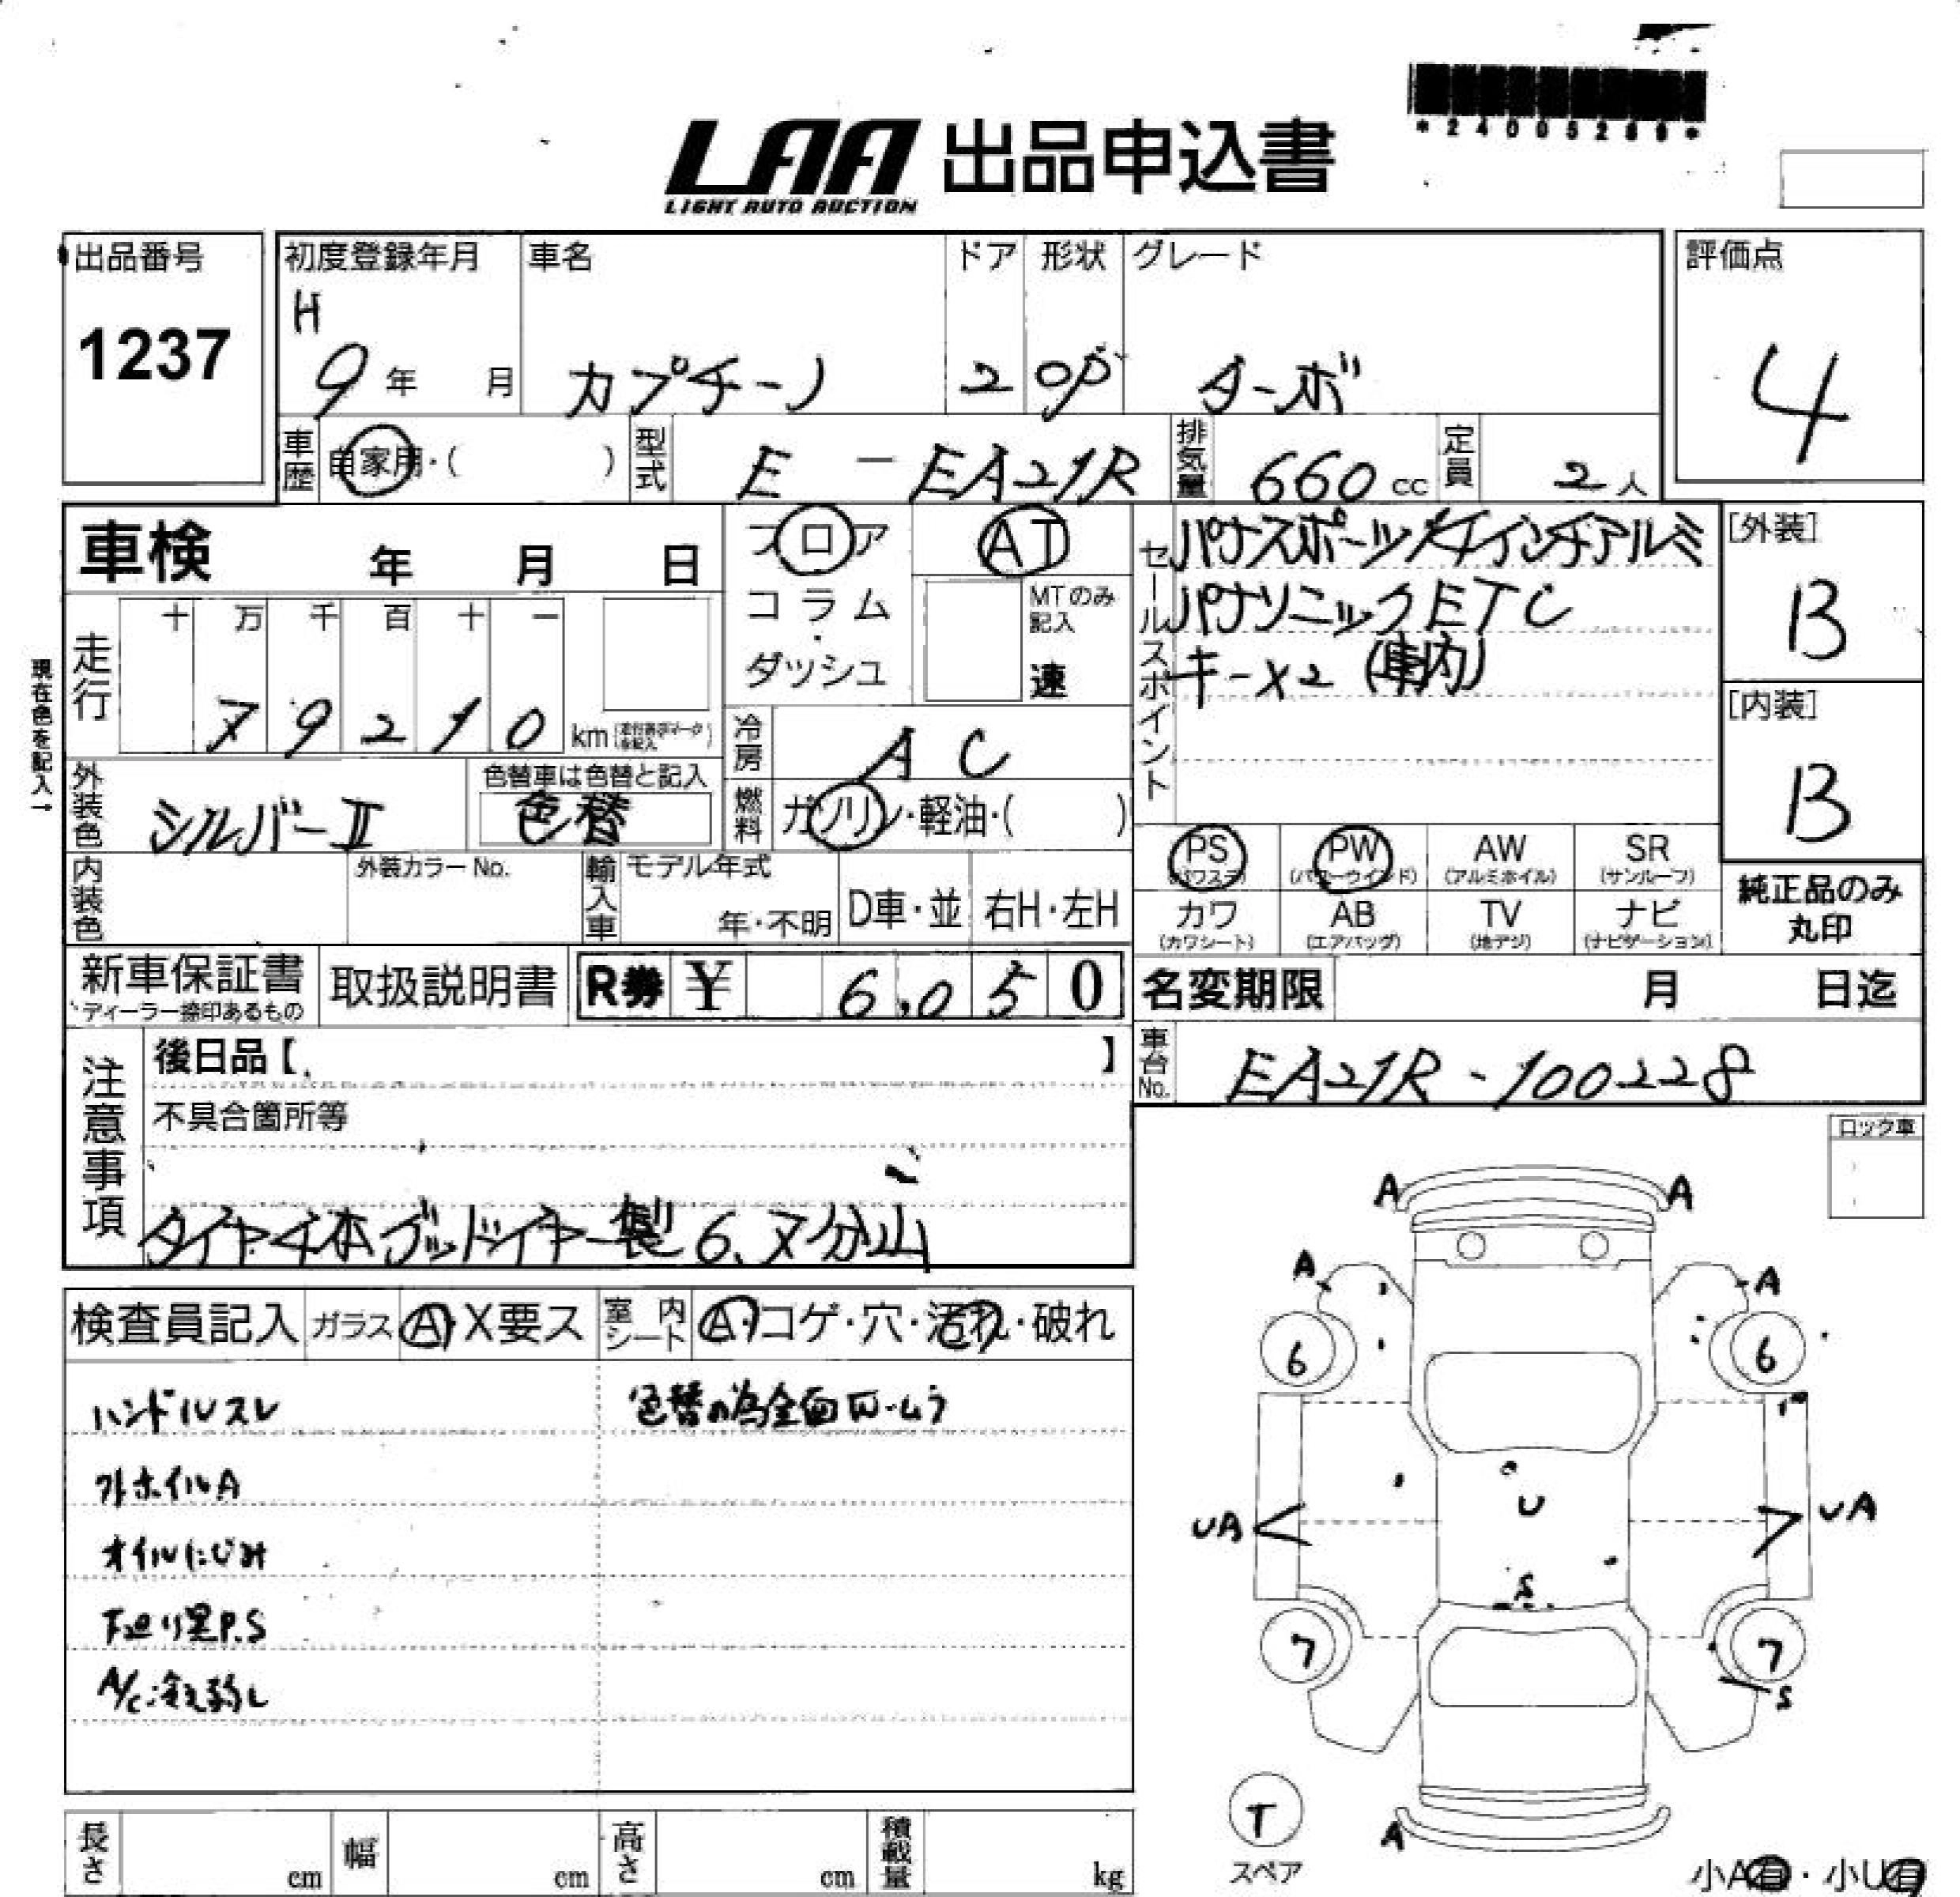 *24005289*
LAA 出品申込書
LIGHT AUTO AUCTION
出品番号
1237
初度登録年月
H
9年 月
車名
カプチーノ
ドア
2
形状
OP
グレード
ターボ
評価点
4
車歴 自家用・( )
型式 E - EA21R
排気量 660 cc
定員 2人
車検 年 月 日
フロア
コラム
・
ダッシュ
AT
MTのみ
記入
速
セールスポイント
パナスポーツ14インチアルミ
パナソニックETC
キーX2 (車内)
[外装]
B
[内装]
B
現在色を記入→
走行
十 万 千 百 十 一
7 9 2 1 0 km
冷房 AC
外装色 シルバーII
色替車は色替と記入
色替
燃料 ガソリン・軽油・( )
PS (パワステ)
PW (パワーウインド)
AW (アルミホイル)
SR (サンルーフ)
カワ (カワシート)
AB (エアバッグ)
TV (地デジ)
ナビ (ナビゲーション)
純正品のみ
丸印
内装色
外装カラーNo.
輸入車
モデル年式
年・不明
D車・並
右H・左H
新車保証書
ディーラー捺印あるもの
取扱説明書
R券 ¥ 6,050
名変期限 月 日迄
車台No. EA21R-100228
注意事項
後日品【 】
不具合箇所等
タイヤ4本グッドイヤー製 6.7分山
ロック車
検査員記入
ガラス A・X要ス
室内シート A・コゲ・穴・汚れ・破れ
ハンドルスレ
色替の為全面W・ムラ
外ホイルA
オイルにじみ
下廻り黒P.S
A/C冷え弱し
A A
A A
6 6
U
UA UA
S
7 7
S
T
スペア
A
小A有・小U有
長さ cm
幅 cm
高さ cm
積載量 kg